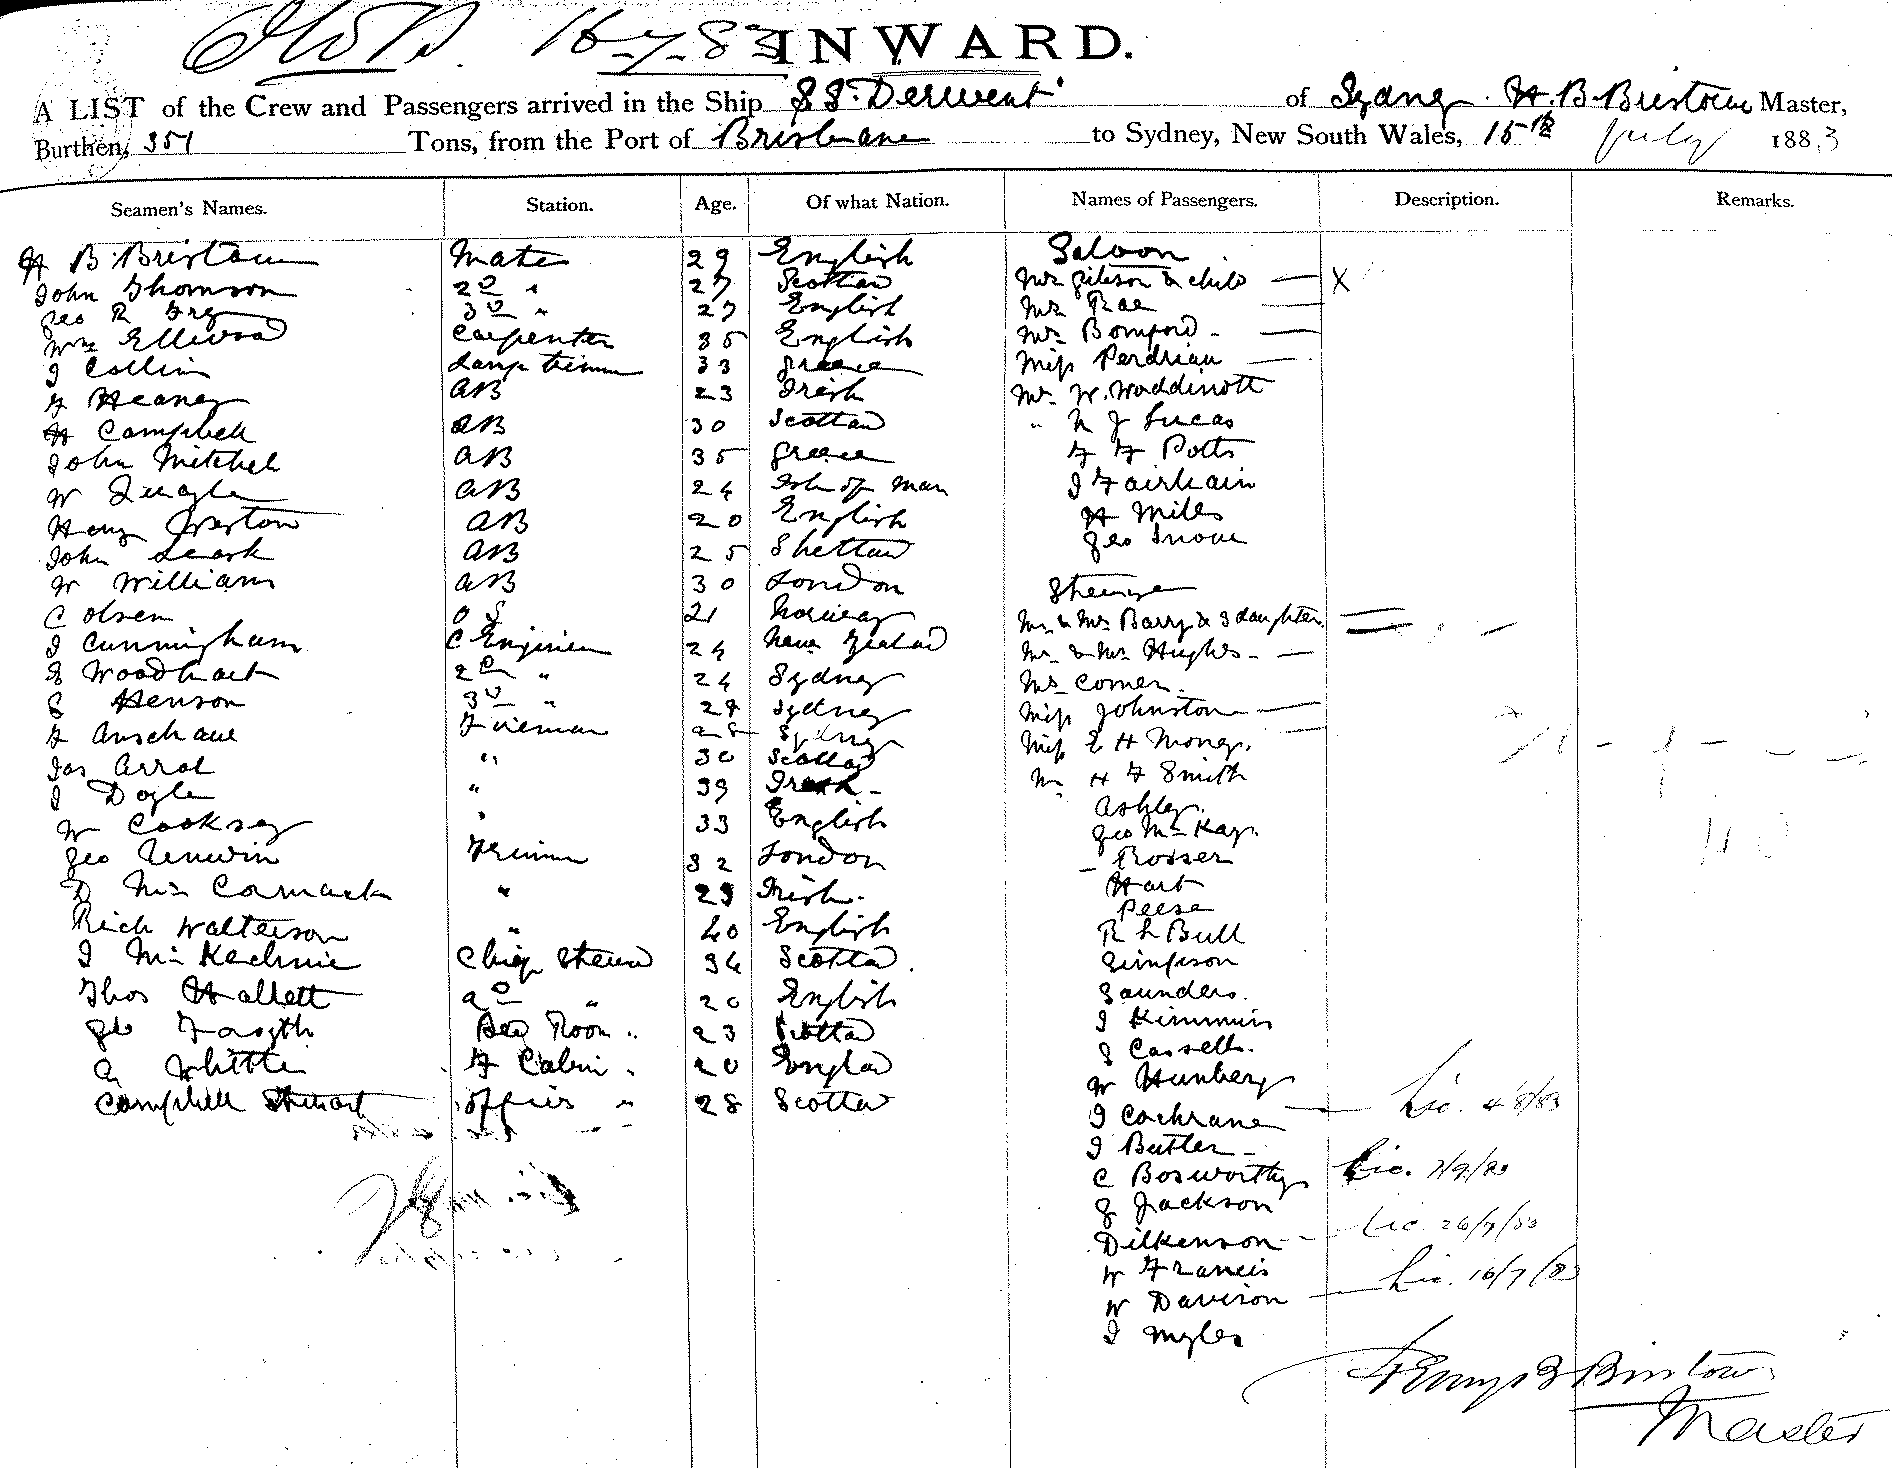 16-7-83 INWARD.
A LIST of the Crew and Passengers arrived in the Ship S.S. Derwent of Sydney H. B. Bristow Master,
Burthen, 351 Tons, from the Port of Brisbane to Sydney, New South Wales, 15th July 1883
Seamen's Names. Station. Age. Of what Nation. Names of Passengers. Description. Remarks.
H B Bristow Mate 29 English Saloon
John Thomson 2D " 27 Scotlan Mrs Gibson & child X
Geo R Fry 3D " 27 English Mrs Rae
Wm Ellwood Carpenter 35 English Mrs Bomford
J Collin Lamp trimm 33 Greece Miss Perdriau
F Heaney AB 23 Irish Mr W. Waddinott
H Campbell AB 30 Scotlan " N J Lucas
John Mitchel AB 35 Greece F F Potts
W AB 24 Isle of Man J Fairhain
Heny AB 20 English H Mills
John Leask AB 25 Shetlan Geo
W William AB 30 London Steerage
C Olsen O S 21 Norway Mr & Mrs Barry & 3 daughter
J Cunningham C Enginee 24 New Zealand Mr & Mrs Hughes
J Woodhart 2D " 24 Sydney Mrs Comer
S Henson 3D " 24 Sydney Miss Johnston
F Fireman 28 Sydney Miss E H Money
Jas Arrol " 30 Scotlan Mr H F Smith
J Doyle " 39 Irish Ashley
W Cooksey " 33 English Geo McKay
Geo Unwin Trimm 32 London Rosser
D McCormack " 29 Irish Hart
Peese
Rich Walterson " 40 English R L Bull
J McKechnie Chief Stewd 34 Scotlan Simpson
Thos Hallett 2D " 20 English Saunders
Geo Forsyth Bed Room " 23 Scotlan J Kimmins
J Cassells
A Whittle F Cabin " 20 Englan W Hunbery
Campbell Stewart Officer " 28 Scotlan J Cochrane Lic. 4/8/83
J Butler
C Bosworthy Lic. 7/9/83
J Jackson
Dilkenson Lic 26/7/83
W Francis
W Davison Lic. 16/7/83
J Myles
Henry B Bristow
Master